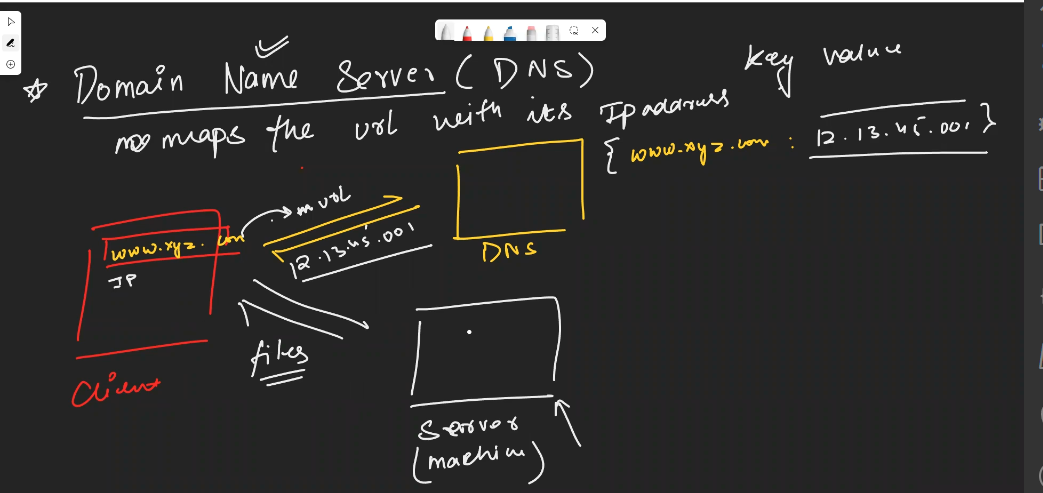 Key value
Domain Name Server (DNS)
maps the url with its IP address
{ www.xyz.com : 12.13.45.001 }
url
www.xyz.com
IP
12.13.45.001
DNS
files
Client
Server
(machine)